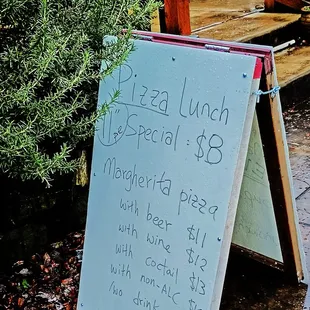 Pizza Lunch
11" Special : $8
Margherita pizza
with beer $11
with wine $12
with coctail $13
with non-ALC
/wo drink